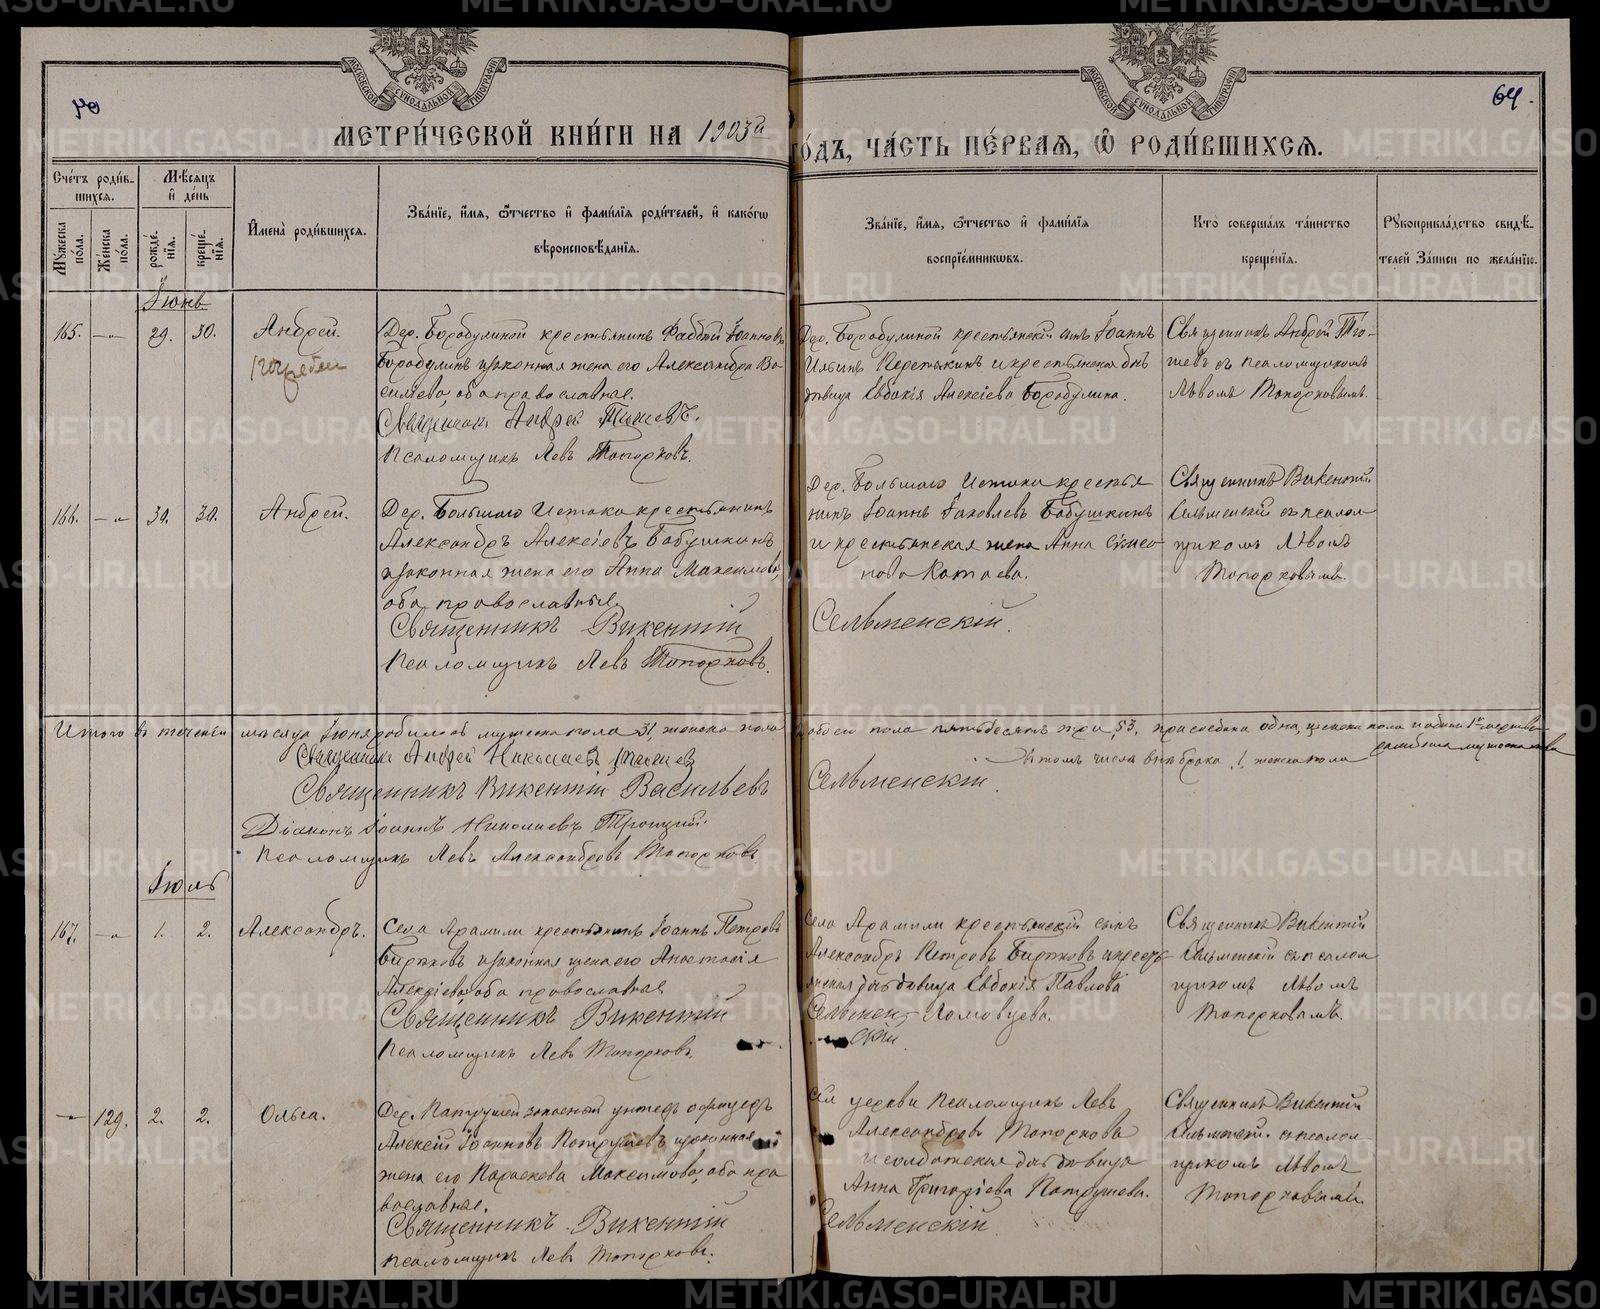 МОСКОВСКОЙ СѴНОДАЛЬНОЙ ТИПОГРАФІИ
МОСКОВСКОЙ СѴНОДАЛЬНОЙ ТИПОГРАФІИ
64.
МЕТРИ́ЧЕСКОЙ КНИ́ГИ НА 1903й
ГО́ДЪ, ЧА́СТЬ ПЕ́РВАѦ, Ѽ РОДИ́ВШИХСѦ.
Сче́тъ роди́в-
шихся.
Мѣ́сяцъ
и҆ де́нь
Мꙋ́жеска по́ла.
Же́нска по́ла.
рожде́-нїя.
креще́-нїя.
И҆мена̀ роди́вшихся.
Зва́нїе, и҆́мя, ѻ҆́тчество и҆ фами́лїя роди́телей, и҆ како́гѡ
вѣроисповѣ́данїя.
Зва́нїе, и҆́мя, ѻ҆́тчество и҆ фами́лїя
воспрїе́мникѡвъ.
Кто̀ соверша́лъ та́инство
креще́нїя.
Рꙋкоприкла́дство свидѣ́-
телей за́писи по жела́нїю.
Іюнь
165. —„— 29. 30. Андрей.
погребен
Дер. Бородулиной крестьянинъ Фаддей Іоанновъ
Бородулинъ и законная жена его Александра Ва
силіева, оба православные.
Священник Андрей Тяшевъ.
Псаломщикъ Левъ Топорковъ.
Дер. Бородулиной крестьянскій сынъ Іоаннъ
Ильинъ Перетякинъ и крестьянская дочь
дѣвица Евдокія Алексіева Бородулина.
Священникъ Андрей
съ псаломщикомъ
Львомъ Топорковымъ.
166. —„— 30. 30. Андрей.
Дер. Большаго Истока крестьянинъ
Александръ Алексіевъ Бабушкинъ
и законная жена его Анна Максимова,
оба православные.
Священникъ Викентій
Псаломщикъ Левъ Топорковъ.
Дер. Большаго Истока крестья
нинъ Іоаннъ Іаковлевъ Бабушкинъ
и крестьянская жена Анна Симео
нова Катаева.
Сельменскій.
Священникъ Викентій
Сельменскій съ псалом
щикомъ Львомъ
Топорковымъ.
Итого въ теченіи мѣсяца Іюня родилось мужеска пола 31, женска пола
обоего пола пятьдесятъ три, 53, присоедена одна, женска пола
Въ томъ числѣ внѣ брака, 1, женска пола
Священникъ Андрей Николаевъ
Священникъ Викентій Васильевъ
Сельменскій.
Діаконъ Іоаннъ Николаевъ Троицкій.
Псаломщикъ Левъ Александровъ Топорковъ.
Іюль
167. —„— 1. 2. Александръ.
Села Арамили крестьянинъ Іоаннъ Петровъ
Бирюковъ и законная жена его Анастасія
Алексіева, оба православные
Священникъ Викентій
Псаломщикъ Левъ Топорковъ.
Села Арамили крестьянскій сынъ
Александръ Петровъ Бирюковъ и кресть
янская дочь дѣвица Евдокія Павлова
Сельмен- Ломовцева.
скій.
Священникъ Викентій
Сельменскій съ псалом
щикомъ Львомъ
Топорковымъ.
—„— 129. 2. 2. Ольга.
Дер. Патрушей запасный унтеръ офицеръ
Алексій Іоанновъ Патрушевъ и законная
жена его Параскева Максимова, оба пра
вославные.
Священникъ Викентій
Псаломщикъ Левъ Топорковъ.
сей церкви Псаломщикъ Левъ
Александровъ Топорковъ
и солдатская дочь дѣвица
Анна Григоріева Патрушева.
Сельменскій
Священникъ Викентій
Сельменскій съ псалом
щикомъ Львомъ
Топорковымъ.
METRIKI.GASO-URAL.RU